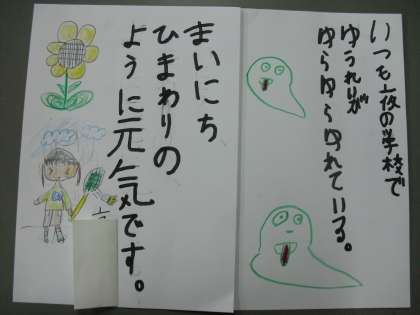 いつも夜の学校で
ゆうれいが
ゆらゆらゆれている。
まいにち
ひまわりの
ように元気です。